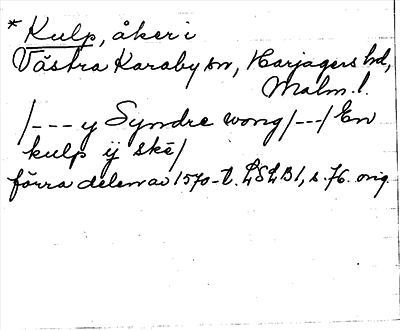 * Kulp, åker i
Västra Karaby sn, Harjagers hd,
Malm. l.
/--- y Syndre wong/---/ En
kulp ij skē/
förra delen av 1570-t. LSLB1, s. 76. orig.